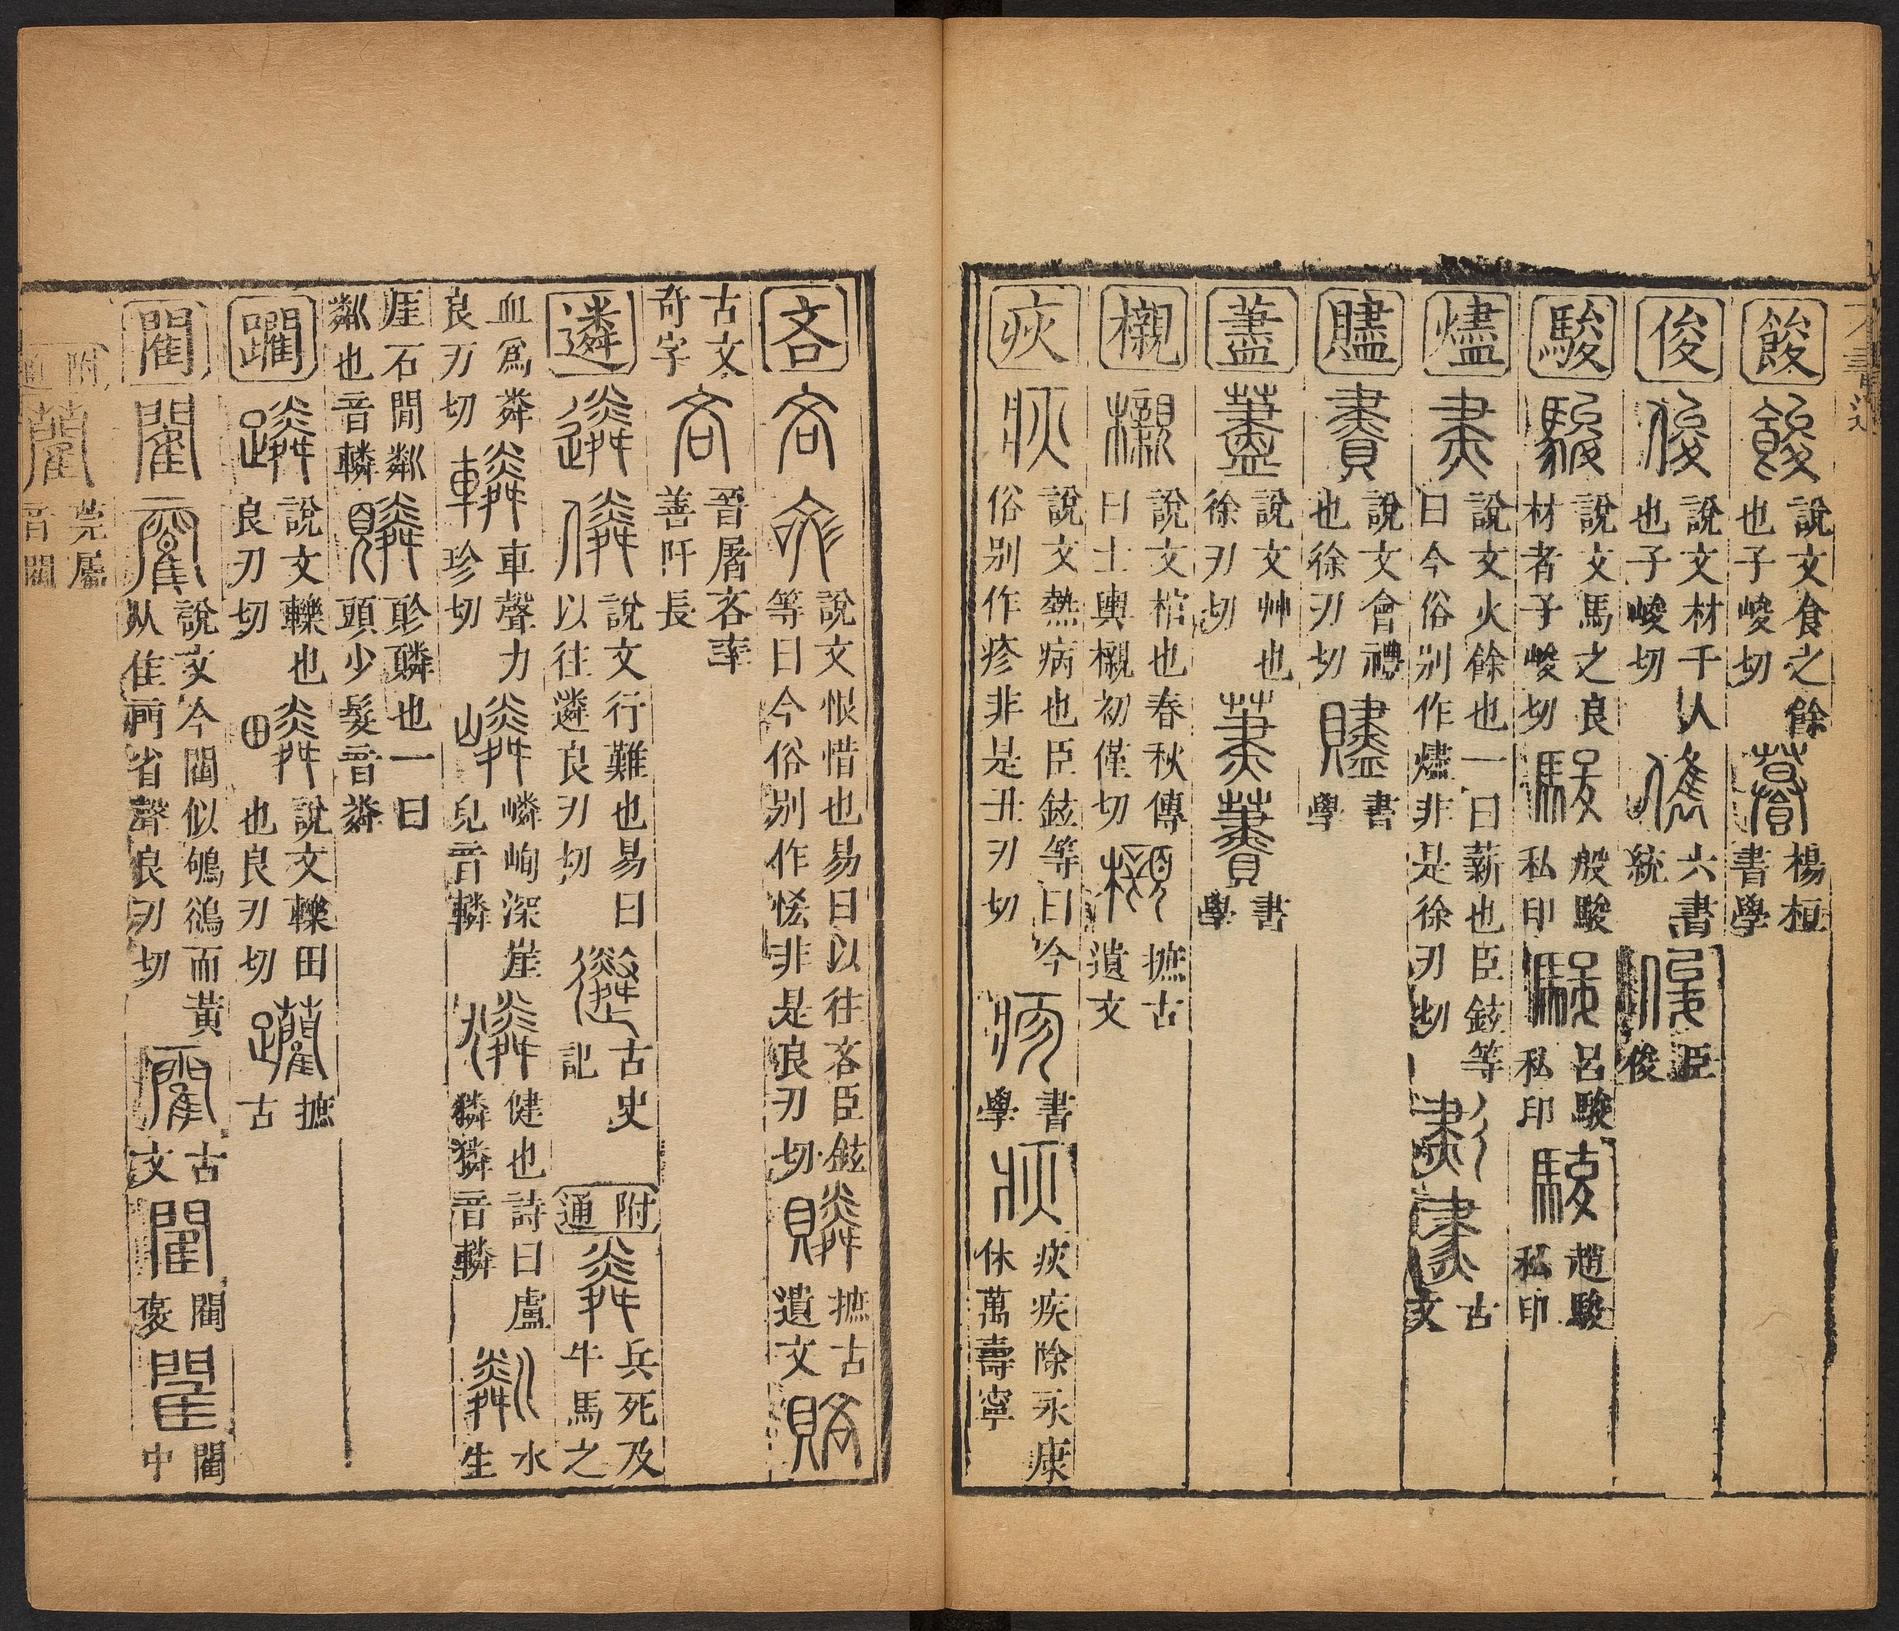 餕 說文食之餘也子峻切 楊桓書學
俊 說文材千人也子峻切 六書統 臣俊
駿 說文馬之良材者子峻切 殷駿私印 呂駿私印 趙駿私印
燼 說文火餘也一曰薪也臣鉉等曰今俗别作燼非是徐刃切 古文
贐 說文會禮也徐刃切 書學
藎 說文艸也徐刃切 書學
櫬 說文棺也春秋傳曰士輿櫬初僅切 摭古遺文
疢 說文熱病也臣鉉等曰今俗别作疹非是丑刃切 書學 疢疾除永康休萬壽寧
吝 說文恨惜也易曰以往吝臣鉉等曰今俗别作恡非是良刃切 摭古遺文
古文奇字 晉屠吝率善阡長
遴 說文行難也易曰以往遴良刃切 古史記 附通 兵死及牛馬之
血爲粦良刃切 車聲力珍切 嶙峋深崖皃音轔 健也詩曰盧獜獜音轔 水生
厓石閒粼粼也音轔 㐱䫰也一曰頭少髮音粦
躙 說文轢也良刃切 說文轢田也良刃切 摭古
閵 說文今閵似鴝鵒而黃从隹䨷省聲良刃切 古文 閵褒 閵中
附通 莞屬音閵